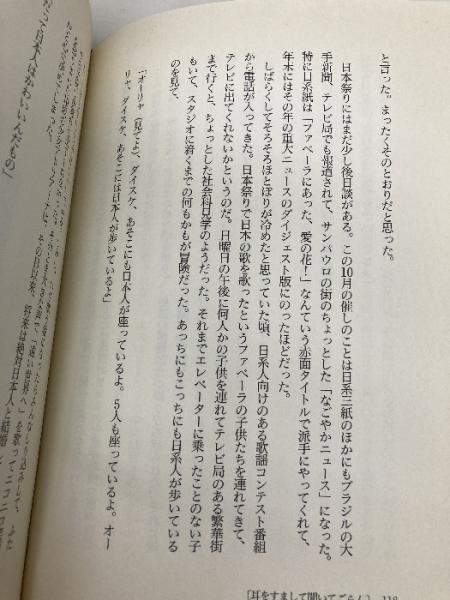 と言った。まったくそのとおりだと思った。
日本祭りにはまだ少し後日談がある。この10月の催しのことは日系三紙のほかにもブラジルの大
手新聞、テレビ局でも報道されて、サンパウロの街のちょっとした「なごやかニュース」になった。
特に日系紙は「ファベーラにあった、愛の花！」なんていう赤面タイトルで派手にやってくれて、
年末にはその年の重大ニュースのダイジェスト版にのったほどだった。
しばらくしてそろそろほとぼりが冷めたと思っていた頃、日系人向けのある歌謡コンテスト番組
から電話が入ってきた。日本祭りで日本の歌を歌ったというファベーラの子供たちを連れてきて、
テレビに出てくれないかというのだ。日曜日の午後に何人かの子供を連れてテレビ局のある繁華街
まで行くと、ちょっとした社会科見学のようだった。それまでエレベーターに乗ったことのない子
もいて、スタジオに着くまでの何もかもが冒険だった。あっちにもこっちにも日系人が歩いている
のを見て、
「オーリャ（見てよ）、ダイスケ、あそこにも日本人が座っているよ。5人も座っているよ。オー
リャ、ダイスケ、あそこには日本人が歩いているよ」
[耳をすまして聞いてごらん] 118
だって日本人はかわいいんだもの」
将来は絶対日本人と結婚